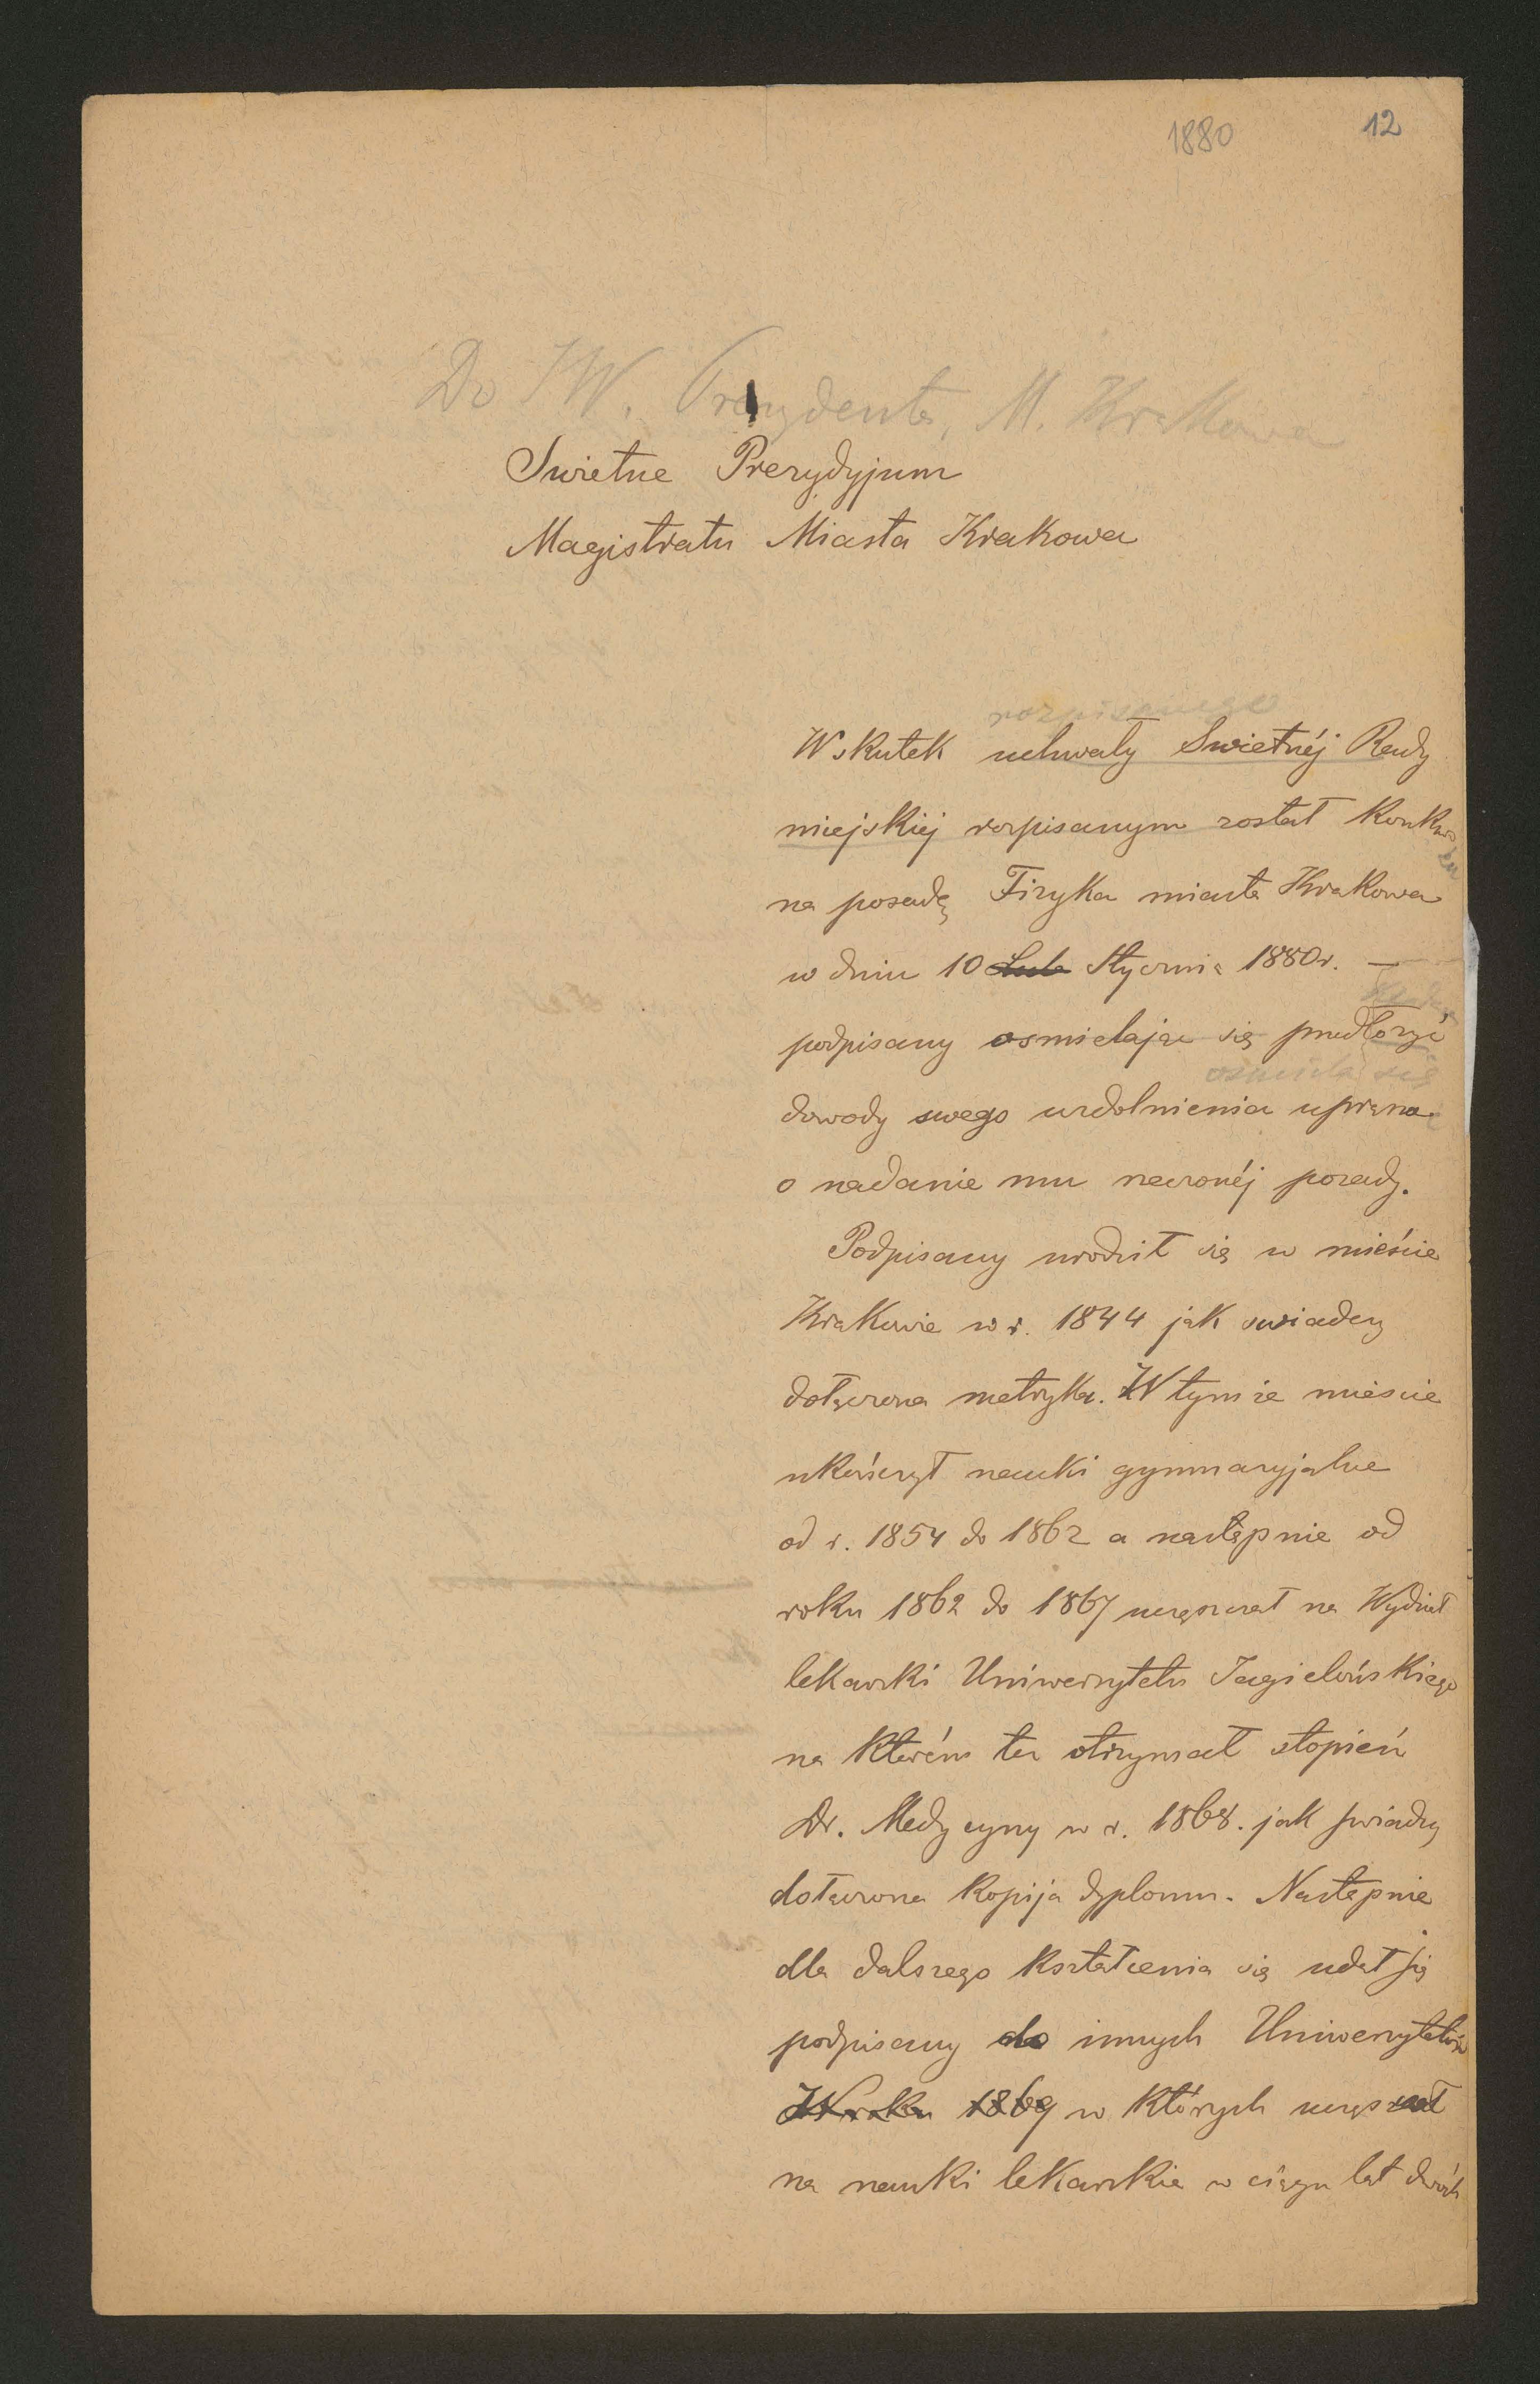 1880 12
Do JW. Prezydenta, M. Krakowa
Swietne Prezydyjum
Magistratu Miasta Krakowa
rozpisanego
Wskutek uchwały Swietnéj Rady
miejskiej rozpisanym został Konkurs
na posadę Fizyka miasta Krakowa
w dniu 10 Lute Stycznia 1880 r. —
podpisany osmielając się przedłożyć
ośmiela się
dowody swego uzdolnienia uprasza
o nadanie mu rzeczonéj posady.
Podpisany urodził się w mieście
Krakowie w r. 1844 jak swiadczy
dołączona metryka. W tymże miescie
ukończył nauki gymnazyjalne
od r. 1854 do 1862 a następnie od
roku 1862 do 1867 uczęszczał na Wydział
lekarski Uniwersytetu Jagielońskiego
na którém to otrzymał stopień
Dr. Medycyny w r. 1868. jak swiadczy
dołączona Kopija dyplomu. Następnie
dla dalszego Kształcenia się udał się
podpisany do innych Uniwersytetów
W roku 1869 w których uczęszczał
na nauki lekarskie w ciągu lat dwóch